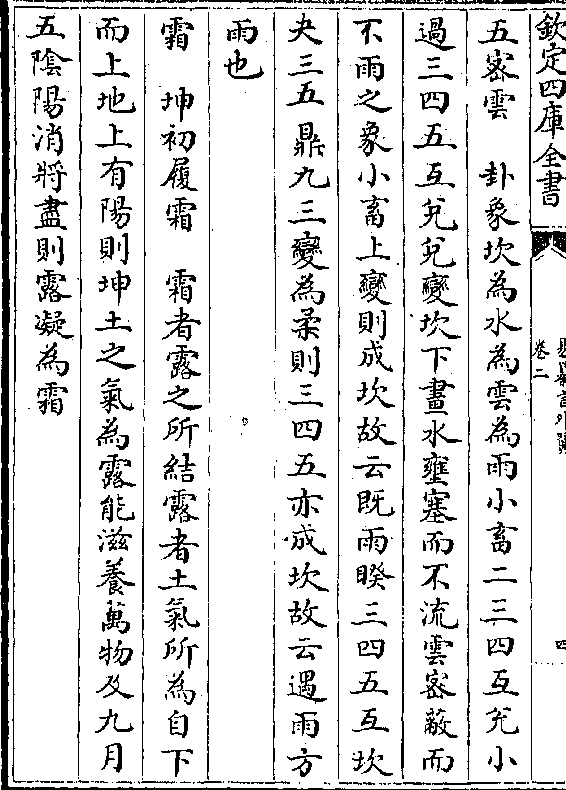 欽定四庫全書
卷二
四
五宻雲　卦象坎為水為雲為雨小畜二三四互兊小
過三四五互兊兊變坎下畫水壅塞而不流雲宻蔽而
不雨之象小畜上變則成坎故云既雨睽三四五互坎
夬三五鼎九三變為柔則三四五亦成坎故云遇雨方
雨也
霜　坤初履霜　霜者露之所結露者土氣所為自下
而上地上有陽則坤土之氣為露能滋養萬物及九月
五隂陽消將盡則露凝為霜